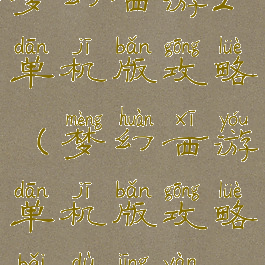 梦幻西游
dān jī bǎn gōng lüè
单机版攻略
mèng huàn xī yóu
（梦幻西游
dān jī bǎn gōng lüè
单机版攻略
bǎi dù jīng yàn